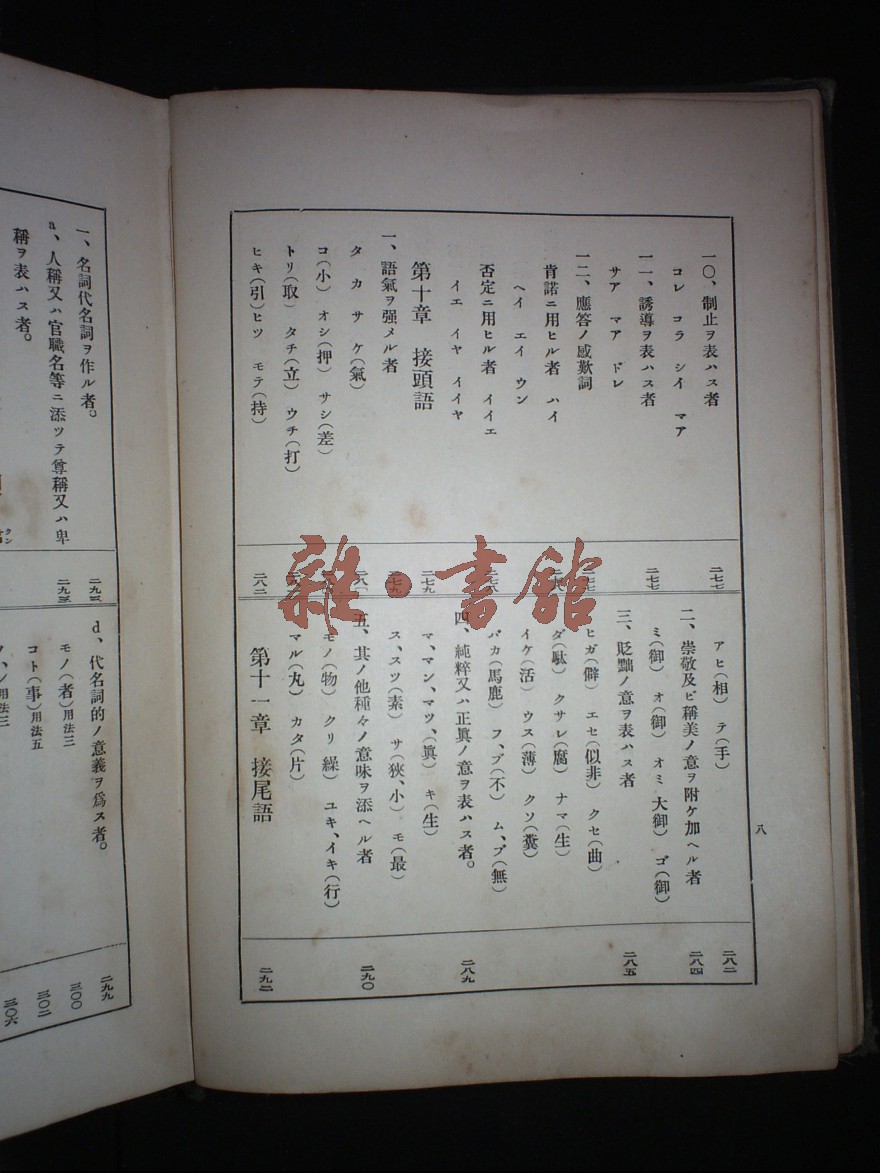 八
一〇、制止ヲ表ハス者 二七七
コレ コラ シイ マア
一一、誘導ヲ表ハス者 二七七
サア マア ドレ
一二、應答ノ感歎詞
肯諾ニ用ヒル者 ハイ
ヘイ エイ ウン
否定ニ用ヒル者 イイエ
イエ イヤ イイヤ
第十章 接頭語 二七九
一、語氣ヲ强メル者
タ カ サ ケ(氣)
コ(小) オシ(押) サシ(差)
トリ(取) タチ(立) ウチ(打)
ヒキ(引)ヒツ モテ(持) 二八二
アヒ(相) テ(手) 二八二
二、崇敬及ビ稱美ノ意ヲ附ケ加ヘル者 二八四
ミ(御) オ(御) オミ 大御) ゴ(御)
三、貶黜ノ意ヲ表ハス者 二八五
ヒガ(僻) エセ(似非) クセ(曲)
ダ(駄) クサレ(腐) ナマ(生)
イケ(活) ウス(薄) クソ(糞)
バカ(馬鹿) フ、ブ(不) ム、ブ(無)
四、純粹又ハ正眞ノ意ヲ表ハス者。 二八九
マ、マン、マツ、(眞) キ(生)
ス、スツ(素) サ(狹、小) モ(最)
五、其ノ他種々ノ意味ヲ添ヘル者 二九〇
モノ(物) クリ 繰) ユキ、イキ(行)
マル(丸) カタ(片)
第十一章 接尾語 二九二
一、名詞代名詞ヲ作ル者。
a、人稱又ハ官職名等ニ添ツテ尊稱又ハ卑
稱ヲ表ハス者。
d、代名詞的ノ意義ヲ爲ス者。 二九九
モノ(者)用法三 三〇〇
コト(事)用法五 三〇二
用法三 三〇六
雜·書館